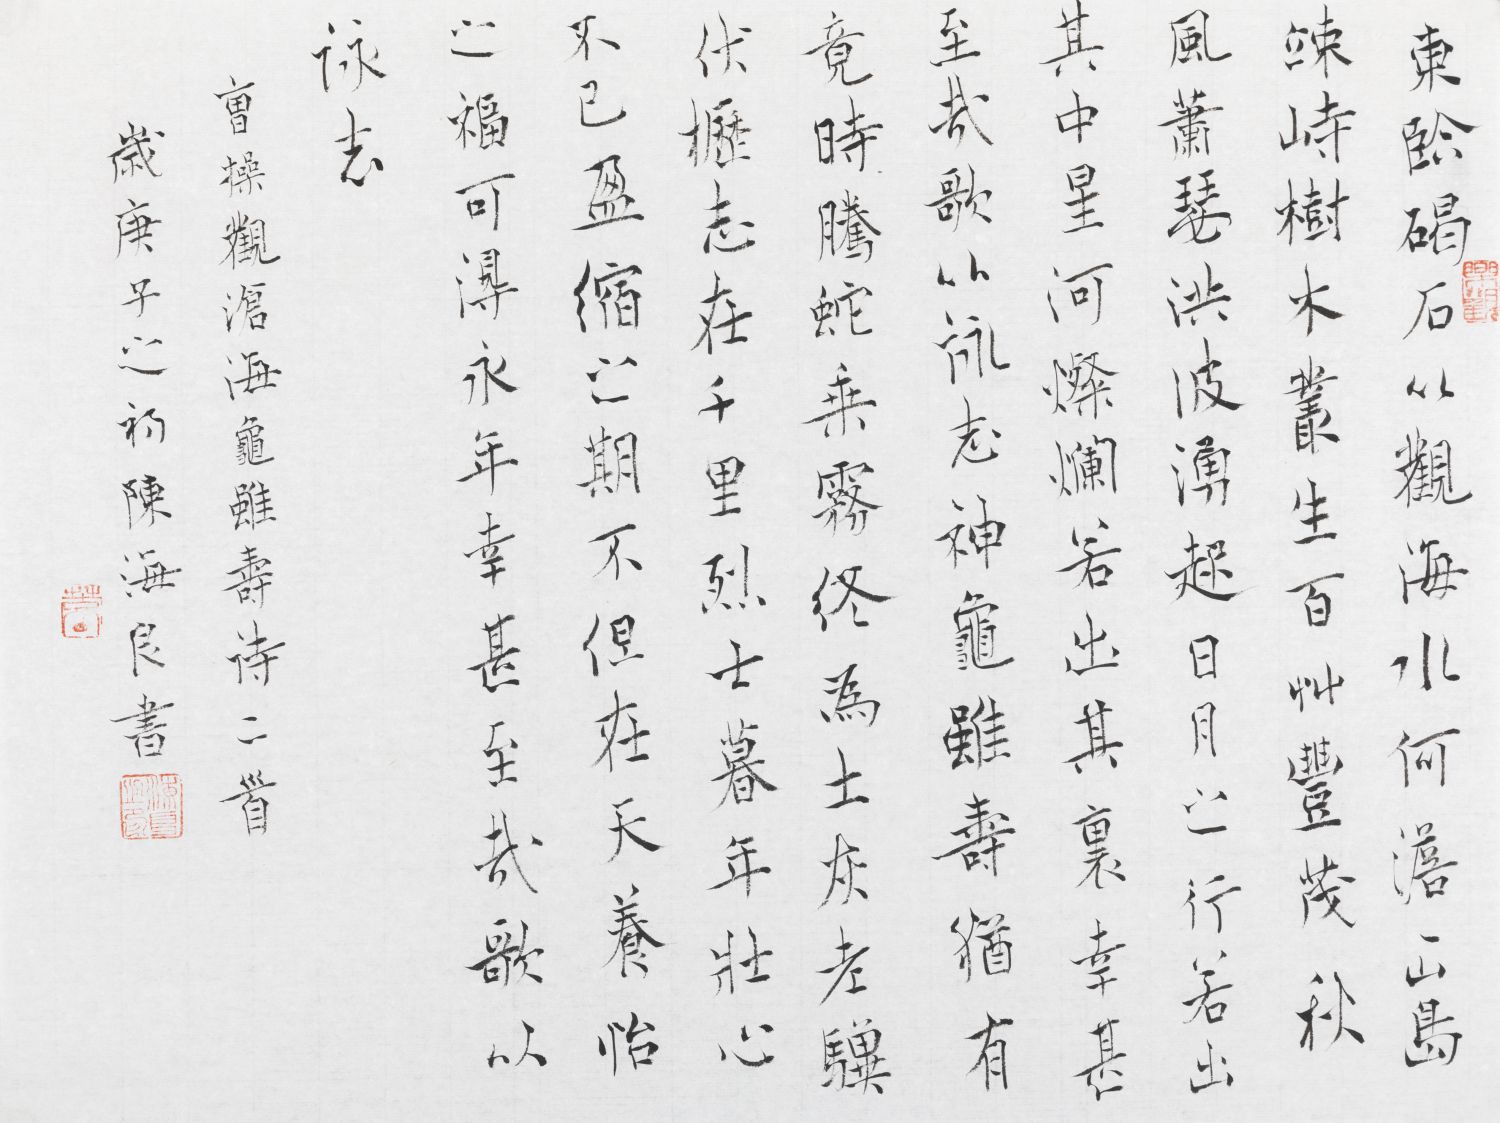 東臨碣石以觀海水何澹山島
竦峙樹木叢生百艸豐茂秋
風蕭瑟洪波湧起日月之行若出
其中星河燦爛若出其裏幸甚
至哉歌以詠志神龜雖壽猶有
竟時騰蛇乘霧終為土灰老驥
伏櫪志在千里烈士暮年壯心
不已盈縮之期不但在天養怡
之福可得永年幸甚至哉歌以
詠志
曹操觀滄海龜雖壽詩二首
歲庚子之初陳海良書